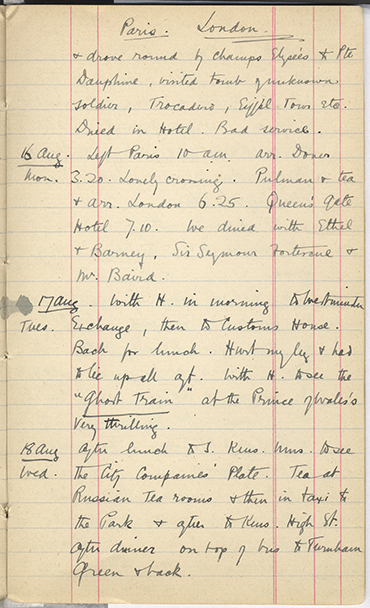 Paris. London.
& drove round by Champs Elysées & Pte
Dauphine, visited tomb of unknown
soldier, Trocadero, Eiffel Tower etc.
Dined in Hotel. Bad service.
16 Aug. Left Paris 10 am. arr. Dover
Mon. 3.20. Lovely crossing. Pulman & tea
& arr. London 6.25. Queen's Gate
Hotel 7.10. We dined with Ethel
& Barney, Sir Seymour Fortescue &
Mr. Baird.
17 Aug. With H. in morning to Westminster
Tues. Exchange, then to Customs House.
Back for lunch. Hurt my leg & had
to lie up all aft. With H. to see the
"Ghost Train" at the Prince of Wales's
Very thrilling.
18 Aug After lunch to S. Kens. Mus. to see
Wed. the City Companies' Plate. Tea at
Russian Tea rooms & then in taxi to
the Park & after to Kens. High St.
After dinner on top of bus to Turnham
Green & back.